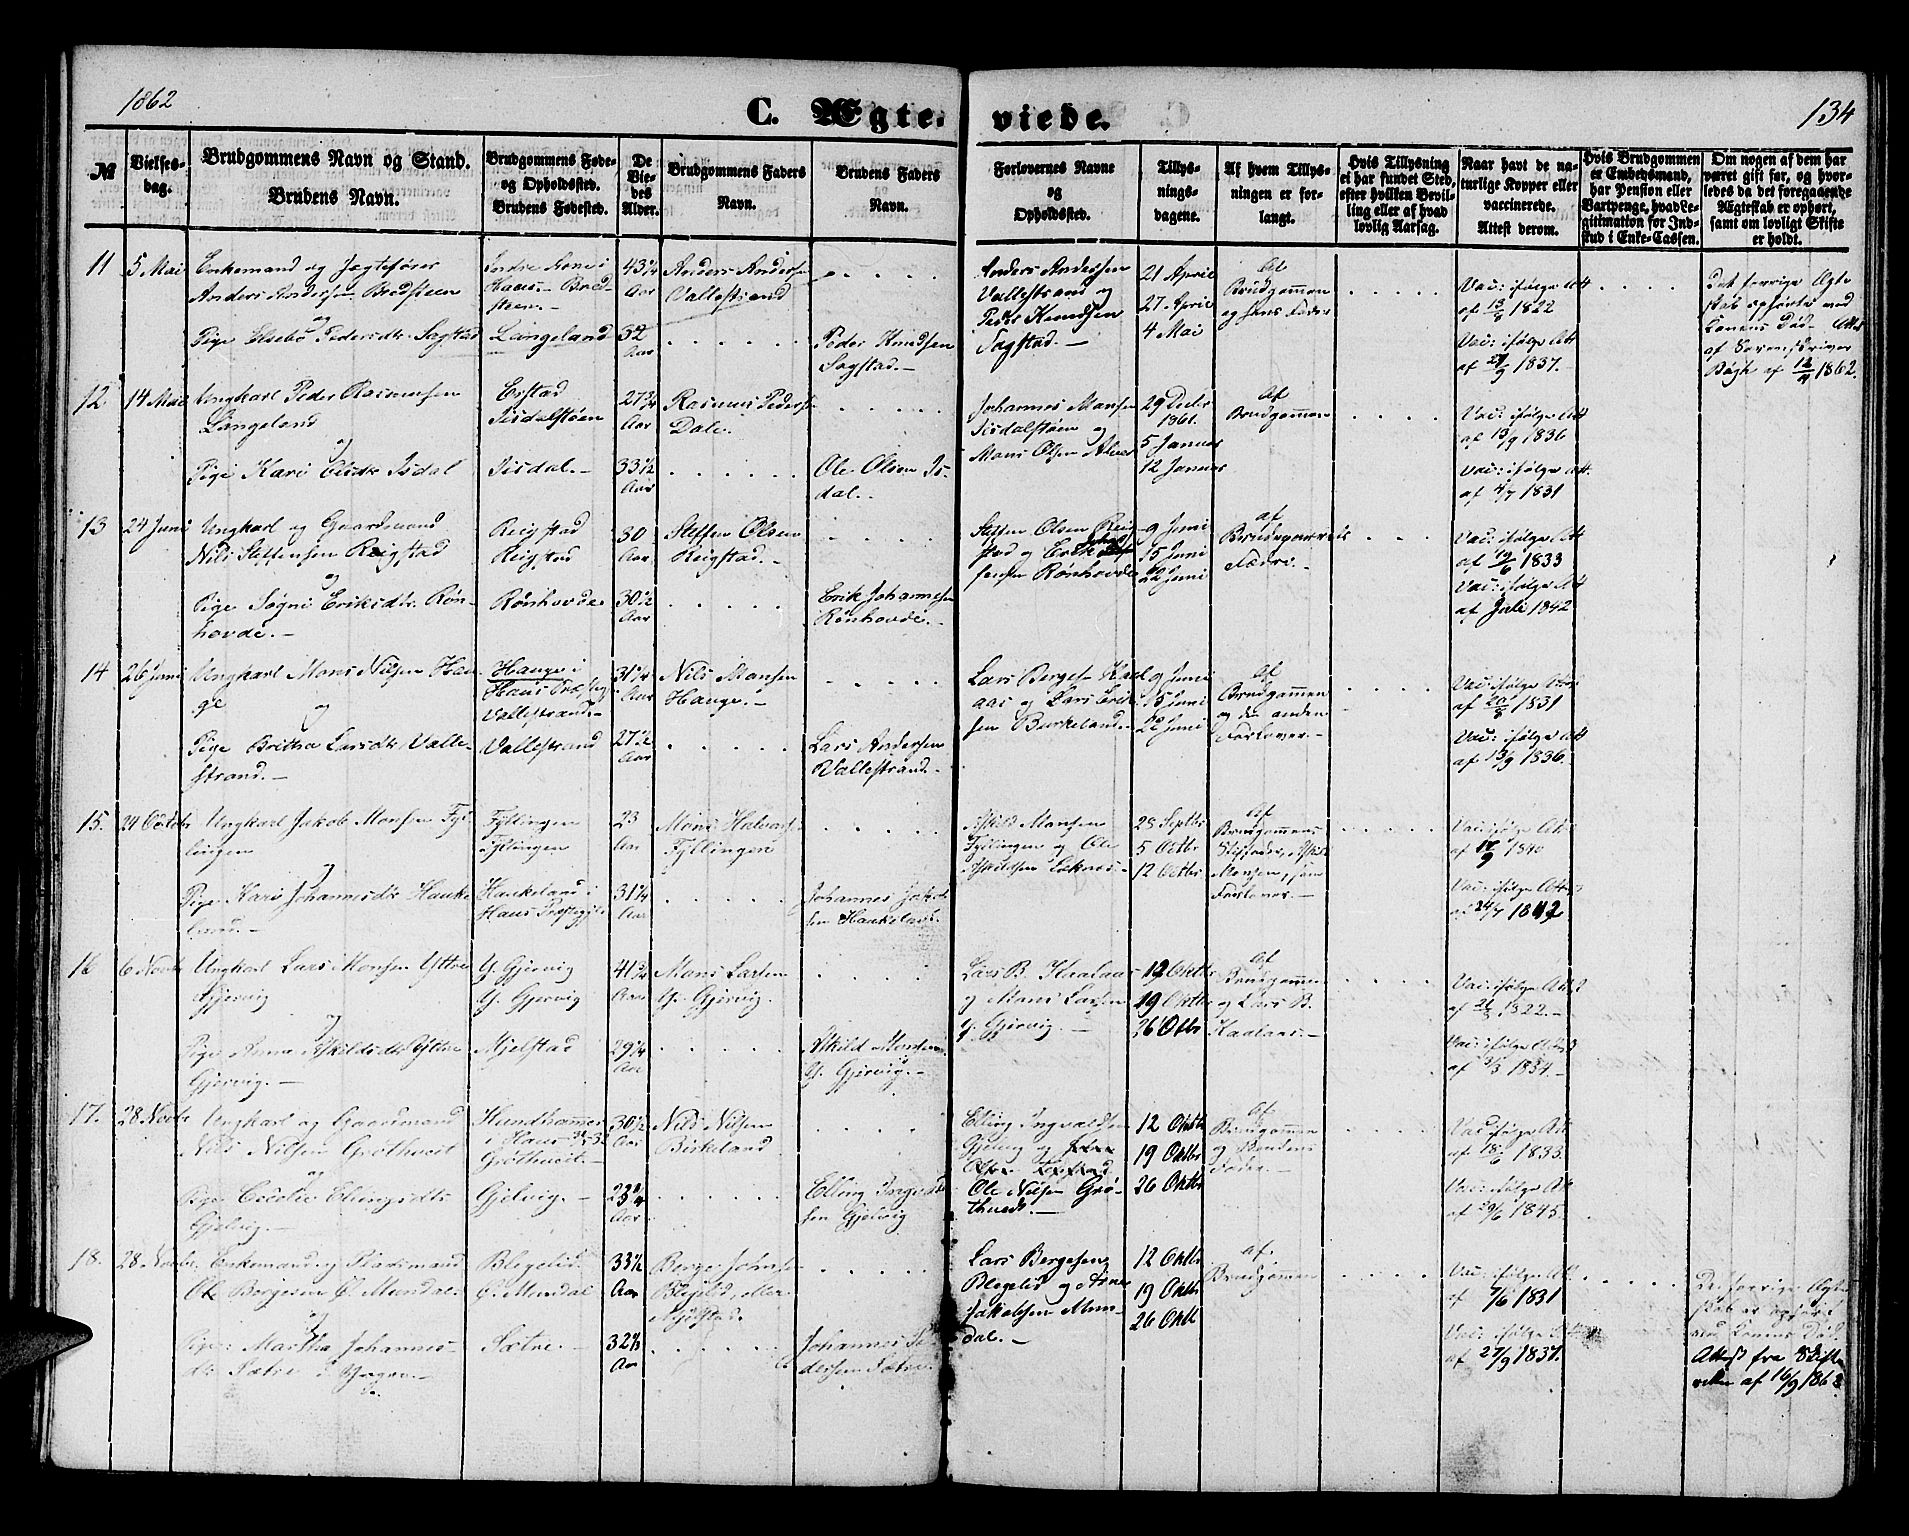 1862
C. Ægte.
viede.
134
№
Vielses-
dag.
Brudgommens Navn og Stand.
Brudens Navn.
Brudgommens Føde-
og Opholdssted.
Brudens Fødested.
De
Vie-
des
Alder.
Brudgommens Faders
Navn.
Brudens Faders
Navn.
Forlovernes Navne
og
Opholdssted.
Tillys-
nings-
dagene.
Af hvem Tillys-
ningen er for-
langt.
Hvis Tillysning
ei har fundet Sted,
efter hvilken Bevil-
ling eller af hvad
lovlig Aarsag.
Naar havt de na-
turlige Kopper eller
vaccinerede.
Attest derom.
Hvis Brudgommen
er Embedsmand,
har Pension eller
Vartpenge, hvad Le-
gitimation for Ind-
skud i Enke-Cassen.
Om nogen af dem har
været gift før, og hvor-
ledes da det foregaaende
Ægteskab er ophørt,
samt om lovligt Skifte
er holdt.
11
5 Mai
Enkemand og Jægtefører
Anders Andersen Bredsteen
og
Pige Elsebø Pedersdtr Sagstad
Indre Arne i
Haus - Bred-
steen.-
Langeland
43 ¾
Aar
32
Aar
Anders Andersen
Vallestrand
Peder Knudsen
Sagstad.-
Anders Andersen
Vallestrand og
Peder Knudsen
Sagstad.-
21 April
27 April
4 Mai
Af
Brudgommen
og hans Fader
Vac: ifølge Att
af 13/8 1822
Vac: ifølge Att
af 21/9 1837.
Det forrige Ægte
skab ophørte ved
Konens Død - Attest
af Sorenskriver
Bøgh af 12/4 1862.
12
14 Mai
Ungkarl Peder Rasmussen
Langeland
og
Pige Kari Olsdtr Isdal
Erstad
Isdalstøen
Isdal.-
27 ¾
Aar
33 ½
Aar
Rasmus Peders
Dale.
Ole Olsen Is-
dal.-
Johannes Mansen
Isdalstøen og
Mons Olsen Alver
29 Decbr
1861.
5 Januar
12 Januar
Af
Brudgommen
Vac: ifølge Att
af 13/9 1836
Vac: ifølge Att.
af 4/7 1831
13
24 Juni
Ungkarl og Gaardmand
Nils Steffensen Reigstad
og
Pige Søgni Eriksdtr Røn-
hovde.-
Reigstad
Reigstad
Rønhovde
30
Aar
30 ½
Aar
Steffen Olsen
Reigstad.-
Erik Johannesen
Rønhovde.-
Steffen Olsen Reig
stad og Erik Johan
sen Rønhovde
9 Juni
15 Juni
22 Juni
af
Brudeparrets
Fædre.-
Vac: ifølge Att
af 19/6 1833
Vac: ifølge Att
af Juli 1842
14
26 Juni
Ungkarl Mons Nilsen Hau-
ge
og
Pige Brittha Larsdtr Valle-
strand.-
Hauge i
Haus Præsteg
Vallestrand-
Vallestrand
31 ¼
Aar
27 ½
Aar
Nils Monsen
Hauge.-
Lars Andersen
Vallestrand.-
Lars Bergesn Kaal
aas og Lars Erik
sen Burkeland.-
9 Juni
15 Juni
22 Juni
Af
Brudgommen
og den anden
Forlover.-
Vac: ifølge Att
af 20/8 1831
Vac: ifølge Att
af 13/9 1836.
15.
24 Octobr
Ungkarl Jakob Monsen Fyl
lingen
og
Pige Kari Johannesdtr Hauke
land.-
Fyllingen
Fyllingen
Haukeland i
Haus Præstegjeld
23
Aar
31 ¼
Aar
Mons Halvors
Fyllingen
Johannes Jakob
sen Haukeland.
Askild Monsen
Fyllingen og Ole
Askildsen Loknæs.-
28 Septbr
5 Octbr
12 Octbr
af
Brudgommens
Stiffader, Askild
Monsen, som
Forlover.-
Vac: ifølge Att
af 14/9 1840
Vac: ifølge Att
af 24/7 1842.
16
6 Novbr
Ungkarl Lars Monsen Yttre
Gjervig
og
Pige Anna Askildsdtr Yttre
Gjervig.-
Y. Gjervig
Y. Gjervig
Mjelstad
41 ¾
Aar
29 ¼
Aar
Mons Larsen
Y. Gjervig.
Askild Monsen
Y. Gjervig.-
Lars B. Kaalaas
og Mons Larsen
Y. Gjervig.-
12 Oktbr
19 Oktbr
26 Otbr
af
Brudgommen
og Lars B.
Kaalaas.-
Vac: ifølge Att
1822.-
Vac: ifølge Att
1834.-
17.
28 Novbr
Ungkarl og Gaardmand
Nils Nilsen Grøthveit
og
Pige Cecilie Ellingsdtr
Gjelvig.-
Hundhammer
i Haus
Grøthveit.-
Gjelvig.-
30 ½
Aar
23 ¾
Aar
Nils Nilsen
Birkeland
Elling Ingvald
sen Gjelvig
Elling Ingvaldsen
Gjelvig og
Ole Nilsen Grø-
thueds.-
12 Oktbr
19 Oktbr
26 Oktbr
af
Brudgommen
og Brudens
Fader.-
Vac: ifølge Att
af 18/6 1833.
Vac: ifølge Att
af 29/6 1845.
18.
28 Novbr.
Enkemand og Pladsmand
Ole Bergesen Ø. Mundal.
og
Pige Martha Johannes-
dtr Sætre
Blegelid
Ø. Mundal
Sætre.-
33 ½
Aar
32 ½
Aar
Berge Johnsen
Blejlid, eller
Mjelstad.
Johannes Pe
dersen Sætre.
Lars Bergesen
Blegelid og Arne
Jakobsen Mun-
dal.-
12 Oktbr
19 Oktbr
26 Oktb
af.
Brudgommen
Vac: ifølge Att
af 7/6 1831
Vac: ifølge Att
af 27/9 1837.
Det forrige Ægte
skab er ophørt
ved Konens Død.
Attest fra Skifte
retten af 16/9 1862.